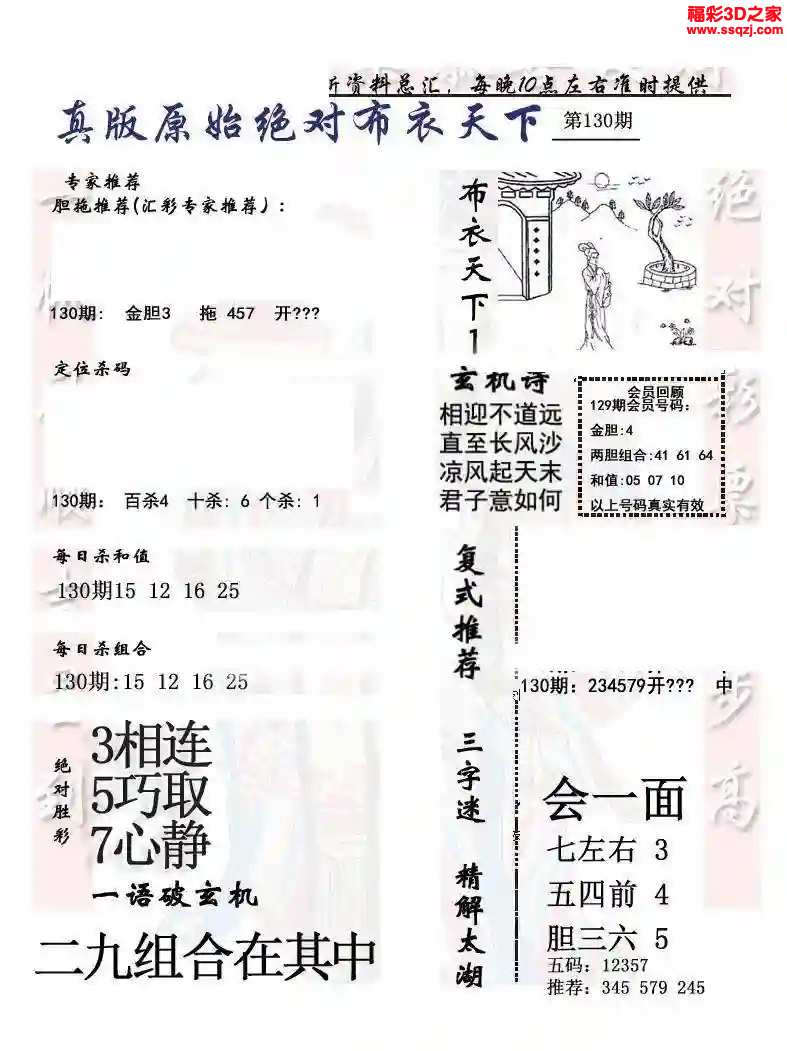 福彩3D之家
www.ssqzj.com
资料总汇，每晚10点左右准时提供
真版原始绝对布衣天下
第130期
专家推荐
胆拖推荐(汇彩专家推荐)：
130期: 金胆3 拖 457 开???
定位杀码
130期: 百杀4 十杀: 6 个杀: 1
每日杀和值
130期15 12 16 25
每日杀组合
130期:15 12 16 25
绝对胜彩
3相连
5巧取
7心静
一语破玄机
二九组合在其中
布衣天下1
玄机诗
相迎不道远
直至长风沙
凉风起天末
君子意如何
会员回顾
129期会员号码:
金胆:4
两胆组合:41 61 64
和值:05 07 10
以上号码真实有效
复式推荐
130期: 234579开??? 中
三字迷
会一面
精解太湖
七左右 3
五四前 4
胆三六 5
五码: 12357
推荐: 345 579 245
绝对彩票
步高